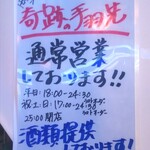 奇跡の手羽先
通常営業
しております!!
平日 18:00~24:30
祝土日 17:00~24:30
25:00閉店
酒類提供
しております!